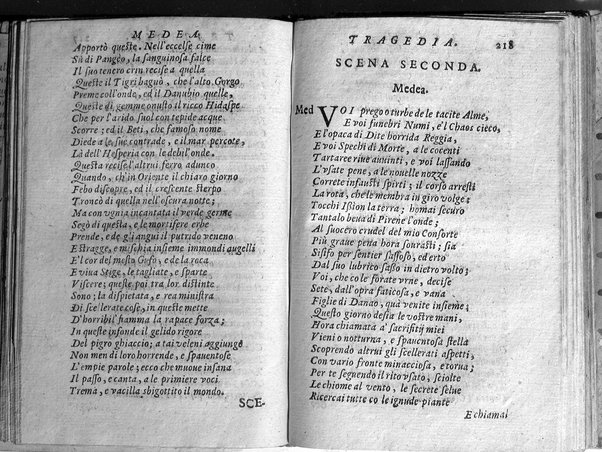 MEDEA.
Apportò queste. Nell'eccelse cime
Sù di Pangeo, la sanguinosa falce
Il suo tenero crin recise a quella
Queste il Tigri bagnò, che l'alto Gorgo
Preme coll'onde, ed il Danubio quelle,
Queste di gemme onusto il ricco Hidaspe
Che per l'arido suol con tepide acque
Scorre; ed il Beti, che famoso nome
Diede a le sue contrade, e il mar percote,
Là dell'Hesperia con le debil'onde.
Questa recise l'altrui ferro adunco
Quando, ch'in Oriente il chiaro giorno
Febo discopre, ed il crescente sterpo
Troncò di quella nell'oscura notte;
Ma con ugnia incantata il verde germe
Segò di questa, e le mortifere erbe
Prende, e de gli angui il putrido veneno
Estragge, e mischia insieme immondi augelli
E'l cor del mesto Gufo, e de la roca
E viua Stige, le tagliate, e sparte
Viscere; queste poi tra lor distinte
Sono; la dispietata, e rea ministra
Di scelerate cose, in queste mette
D'horribil fiamma la rapace forza;
In queste infonde il gelido rigore
Del pigro ghiaccio; a tai veleni aggiunge
Non men di loro horrende, e spauentose
L'empie parole; ecco che muoue insana
Il passo, e canta, a le primiere voci
Trema, e vacilla sbigottito il mondo.
SCE-
TRAGEDIA. 218
SCENA SECONDA.
Medea.
Med VOI prego o turbe de le tacite Alme,
E voi funebri Numi, e'l Chaos cieco,
E l'opaca di Dite horrida Reggia,
E voi Spechi di Morte, a le cocenti
Tartaree riue auuinti, e voi lassando
L'vsate pene, a le nouelle nozze
Correte infausti spirti; il corso arresti
La rota, che le membra in giro volge;
Tocchi Ission la terra; homai securo
Tantalo beua di Pirene l'onde;
Al suocero crudel del mio Consorte
Più graue pena hora sourasti; sia
Sisifo per sentier sassoso, ed erto
Dal suo lubrico sasso in dietro volto;
Voi, che co le forate vrne, decise
Sete, dall'opra faticosa, e vana
Figlie di Danao, quà venite insieme;
Questo giorno desia le vostre mani,
Hora chiamata a' sacrifitij miei
Vieni o notturna, e spauentosa stella
Scoprendo altrui gli scellerati aspetti,
Con vario fronte minacciosa, e torua;
Per te seguendo il rito vsato, sciolte
Le chiome al vento, le secrete selue
Ricercai tutte co le ignude piante
E chiamai